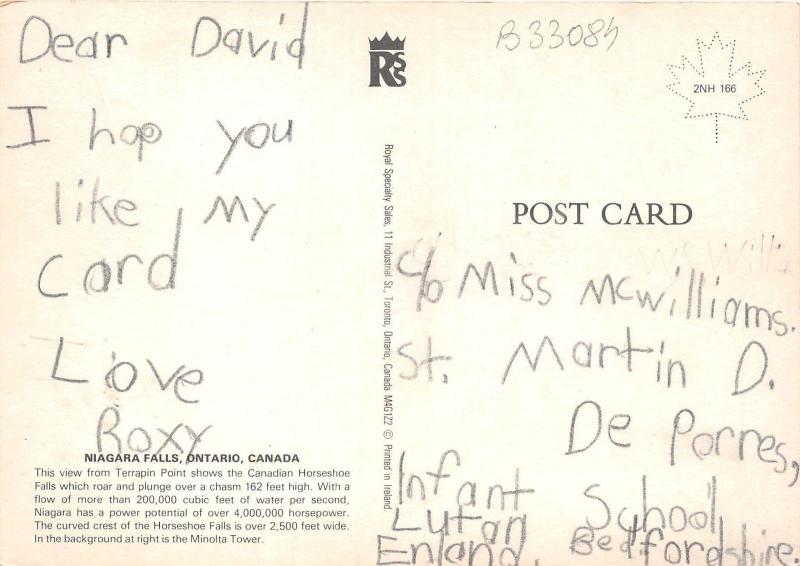 Dear David
I hop you
like my
card
Love
Roxy
NIAGARA FALLS, ONTARIO, CANADA
This view from Terrapin Point shows the Canadian Horseshoe
Falls which roar and plunge over a chasm 162 feet high. With a
flow of more than 200,000 cubic feet of water per second,
Niagara has a power potential of over 4,000,000 horsepower.
The curved crest of the Horseshoe Falls is over 2,500 feet wide.
In the background at right is the Minolta Tower.
RSS
Royal Specialty Sales, 11 Industrial St., Toronto, Ontario, Canada M4G1Z2 © Printed in Ireland
B33084
2NH 166
POST CARD
c/o Miss McWilliams.
St. Martin D.
De Porres,
Infant School
Lutan Bedfordshire.
Enland.